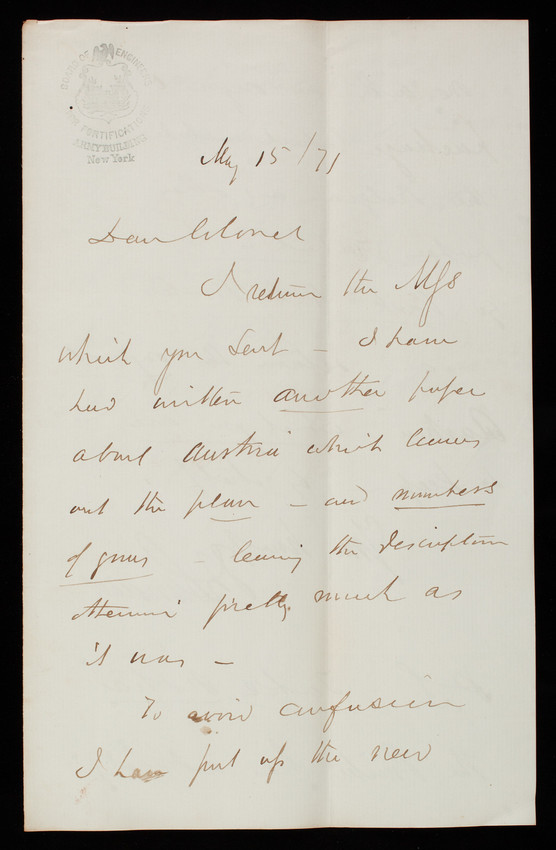 BOARD OF ENGINEERS
FOR FORTIFICATIONS
ARMY BUILDING
New York
May 15/71
Dear Colonel
I return the MSS
which you sent – I have
had written another paper
about Austria which leaves
out the plan – and numbers
of guns – leaving the description
otherwise pretty much as
it was –
To avoid confusion
I have put up the new